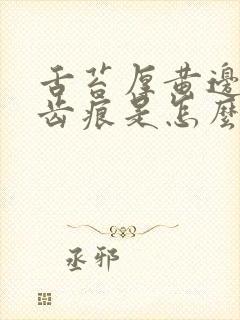 舌苔厚黄边
齿痕是怎麽
丞邪